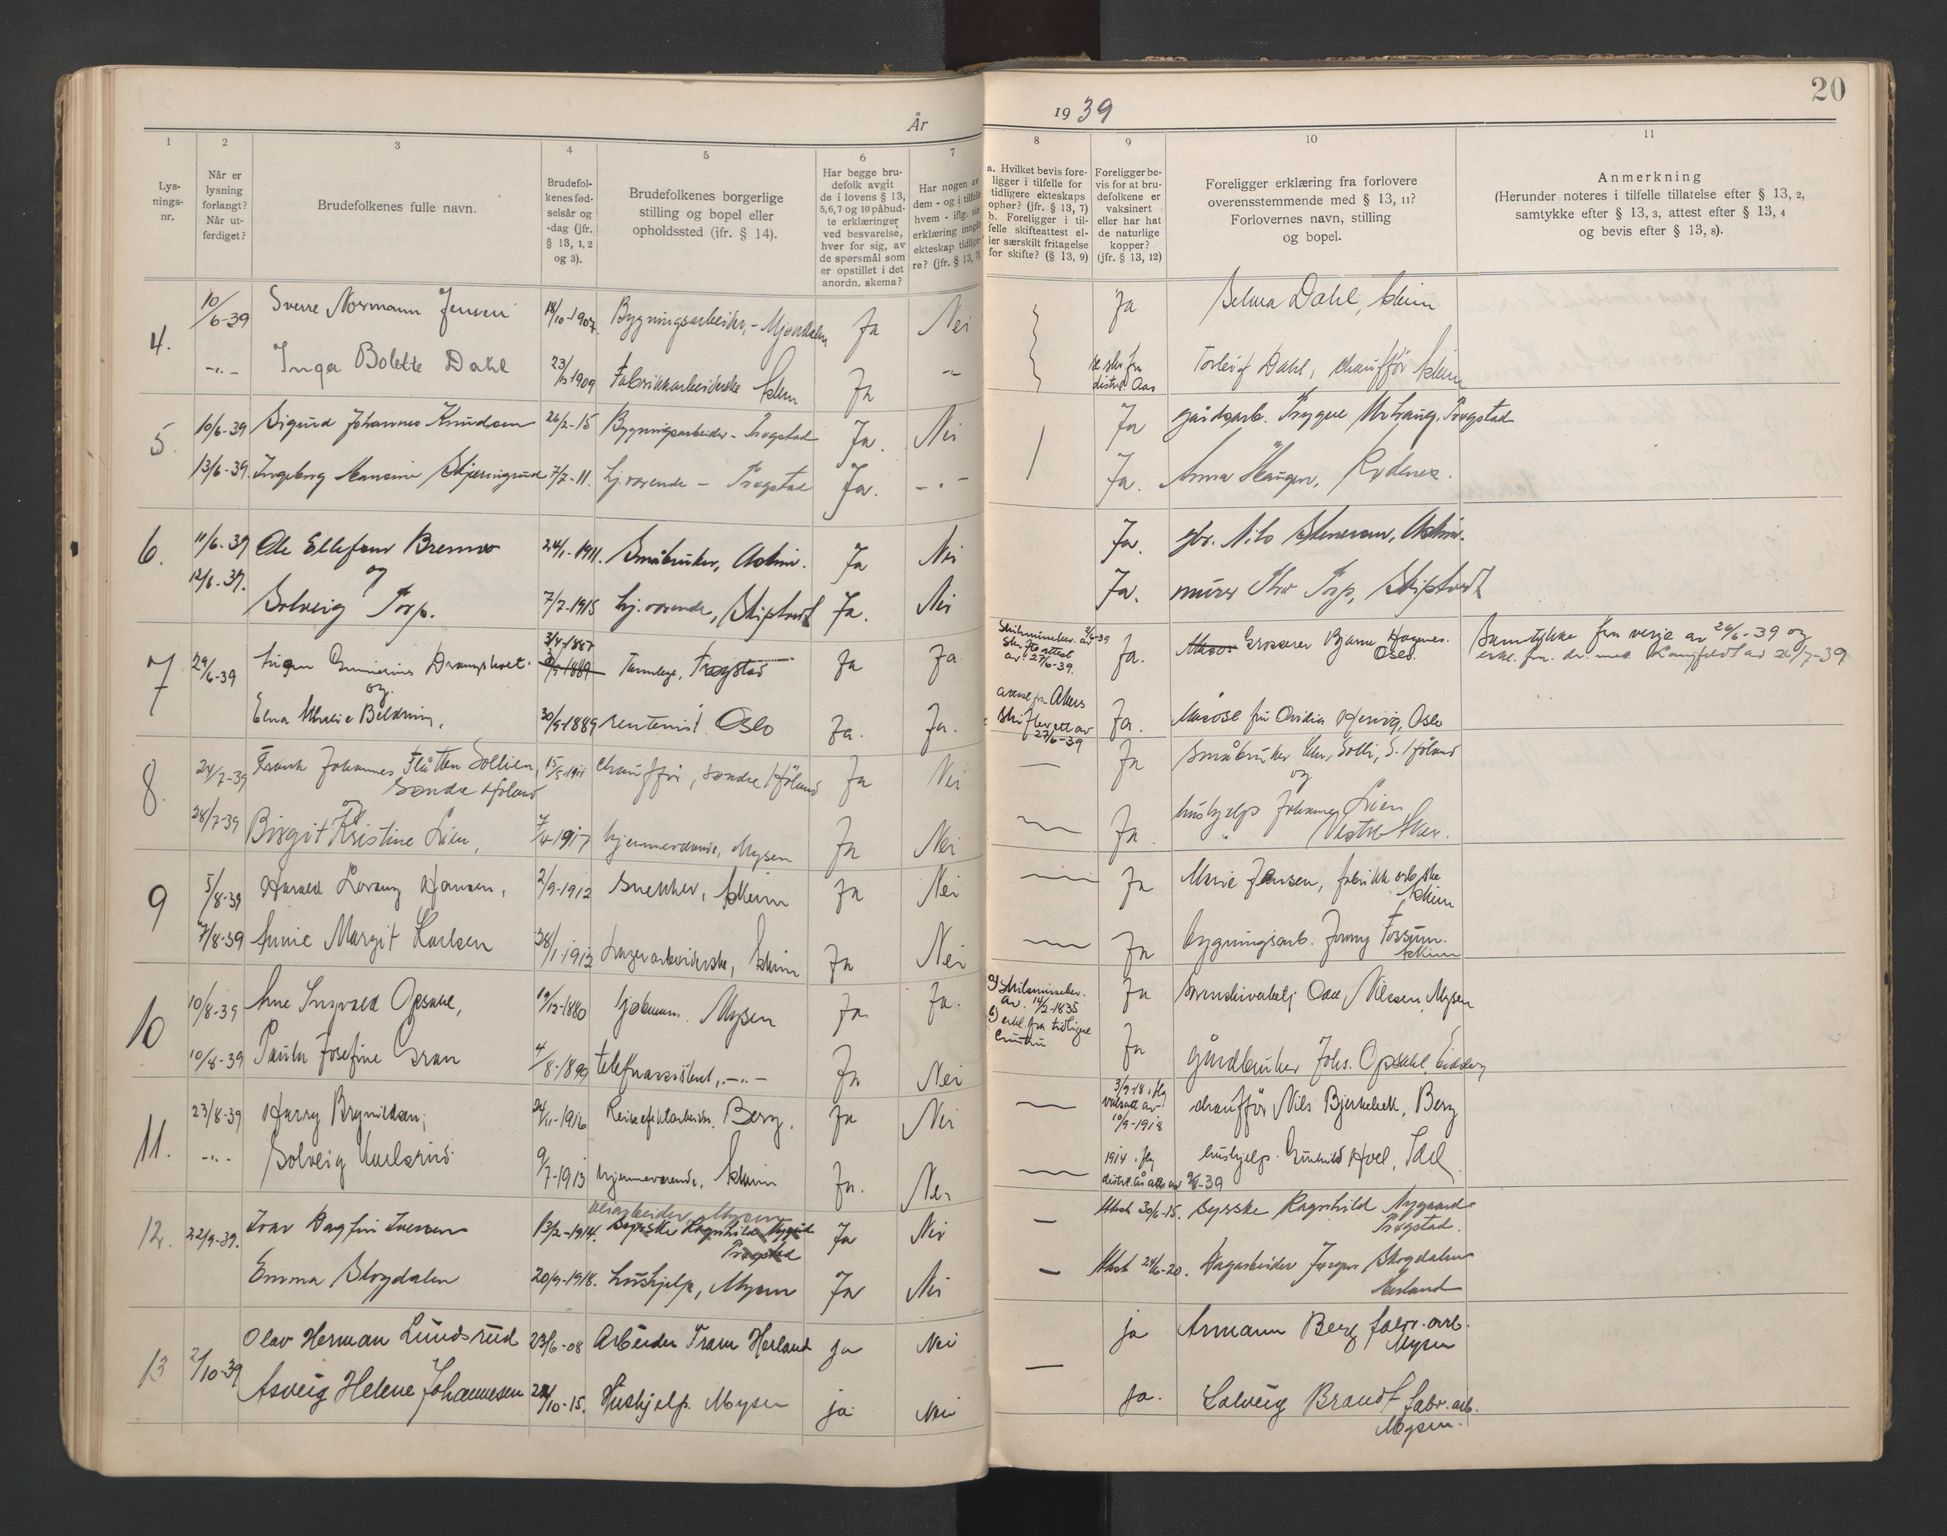 År 1939
20
1
2
3
4
5
6
7
8
9
10
11
Lys-
nings-
nr.
Når er
lysning
forlangt?
Når ut-
ferdiget?
Brudefolkenes fulle navn.
Brudefol-
kenes fød-
selsår og
-dag (jfr.
§ 13, 1, 2
og 3).
Brudefolkenes borgerlige
stilling og bopel eller
opholdssted (jfr. § 14).
Har begge bru-
defolk avgit
de i lovens § 13,
5, 6, 7 og 10 påbud-
te erklæringer
ved besvarelse,
hver for sig, av
de spørsmål som
er opstillet i det
anordn. skema?
Har nogen av
dem - og i tilfelle
hvem - iflg. sin
erklæring inngått
ekteskap tidlige-
re? (jfr. § 13, 7)
a. Hvilket bevis fore-
ligger i tilfelle for
tidligere ekteskaps
ophør? (jfr. § 13, 7)
b. Foreligger i til-
felle skifteattest el-
ler særskilt fritagelse
for skifte? (§ 13, 9)
Foreligger be-
vis for at bru-
defolkene er
vaksinert
eller har hat
de naturlige
kopper?
(jfr. § 13, 12)
Foreligger erklæring fra forlovere
overensstemmende med § 13, 11?
Forlovernes navn, stilling
og bopel.
Anmerkning
(Herunder noteres i tilfelle tillatelse efter § 13, 2,
samtykke efter § 13, 3, attest efter § 13, 4
og bevis efter § 13, 8).
4. 10/6-39 Sverre Normann Jensen 18/10-1907. Bygningsarbeider, - Mjøndalen Ja Nei Ja Selma Dahl, Askim
-"- Inga Bolette Dahl 23/ 1909 Fabrikkarbeiderske Askim Ja -"- Torleif Dahl, chauffør Askim
5. 10/6-39 Sigurd Johannes Knudsen 26/2-15 Bygningsarbeider - Trøgstad Ja. Nei Ja gårdsarb. Trygve Trøgstad
13/6-39. Ingeborg Skjerningrud 7/7-11. hj. værende - Trøgstad Ja. -"- Ja. Anna Haugen, Rødenes.
6. 11/6-39 Ole Ellefsen Bremer 24/1-1911. Småbruker, Askim. Ja Nei Ja. gbr. Nils Stenersen, Askim.
og
12/6-39. Solveig Torp. 7/7-1915 hj. værende, Skiptvedt Ja. Nei Ja. murer Thor Torp, Skiptvedt
7 29/6-39 3/4-1887 Tannlege, Trøgstad Ja Ja Ja. Grosserer Bjarne Hagenes. Oslo. Samtykke fra verje av 26/6-39 og
og
Skifteattest av 27/6-39.
Elna 30/9-1889 rentenist Oslo Ja. Ja. Skifteatt av 27/6-39 Ja. fru Oslo
8. 24/7-39 Frank Johannes Fløtten Sollien, 15/5-1911 chauffør, søndre Høland Ja Nei — Ja Småbruker S. Høland
Søndre Høland
og og
28/7-39 Birgit Kristine Lien, 7/4-1917 hjemmeværende, Mysen Ja Nei Ja. hushjelp Johanne Lien
Vestre Aker.
9 5/8-39 Harald Lorang Hansen, 2/9-1912 snekker, Askim Ja Nei Ja Marie Jensen, fabrikkarb.ske
Askim
7/8-39 Annie Margit Karlsen 28/1-1912 Lagerarbeiderske, Askim Ja Nei Ja bygningsarb. Jonny Fossum.
Askim
10 10/8-39 Arne Ingvald Opsahl, 10/12-1880 Mysen Ja Ja. Skilsmissebev. av. 14/2-1835 erkl. fra tidligere Ja Odd Nilssen, Mysen
10/8-39 Paula Josefine Gran 4/8-1899 telefnassistent, -"- Ja Nei Ja gårdbruker Johs. Opsahl, Eidsberg
11. 23/8-39 Harry Brynildsen; 24/11-1916 Reiseeffektarbeider, Berg. Ja Nei 3/9-18. flg vaksatt av 10/9-1918 chauffør Nils Bjerkebek, Berg
-"- Solveig Karlsrud. 9/7-1913 hjemmeværende, Askim Ja. Nei 1914. flg hushjelp. Gunhild Hoel,
12. 22/9-39. Ivar Dagfin Iversen 13/2-1914. veiarbeider, Mysen Syerske Ragnhild Nygård Trøgstad Ja Nei — Attest 30/6-15. Syerske Ragnhild Nygaard
Trøgstad.
Emma Skogdalen 20/9-1918. hushjelp, Mysen Ja Nei — Attest 24/6-20. Vegarbeider Jørgen Skogdalen
Herland
13 2/10-39 Olav Herman Lundsrud 23/6-08 Arbeider Tram Herland ja Nei ja Armann Berg fabr. arb.
Mysen
Asveig Helene Johannesen /10-15. Hushjelp. Mysen ja Nei — ja. Solveig Brandt fabr. arb.
Mysen.